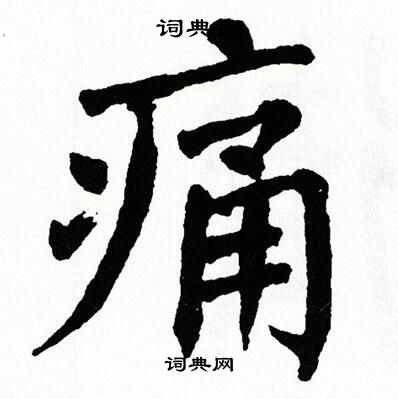 词典
痛
词典网